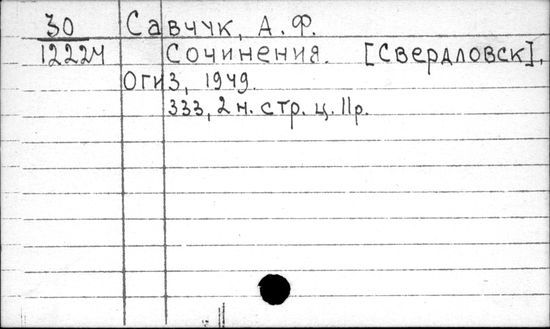 30 Савчук, А. Ф.
12224 Сочинения. [Свердловск],
Огиз, 1949.
333, 2 н. стр. ц. 11 р.